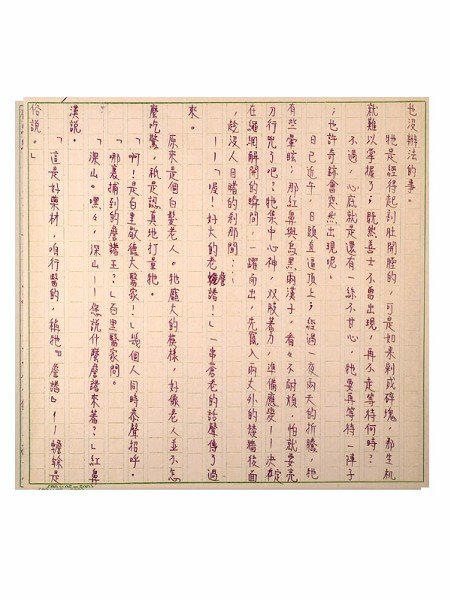 也沒辦法的事。
牠是經得起剖肚開腔的，可是如果剁成碎塊，那生机
就難以掌握了；既然善士不曾出現，再不走等待何時？
不過，心底就是還有一絲不甘心，牠要再等待一陣子
；也許奇跡會突然出現呢。
日已近午，日頭直逼頂上；經過一夜兩天的折騰，牠
有些暈眩；那紅鼻與烏黑兩漢子，看々不耐煩，怕就要亮
刀行兇了吧？牠集中心神，双股著力，準備應變！——決定
在繩網解開的瞬間，一躍而出，先竄入兩丈外的矮牆後面
，趁沒人目睹的剎那間……
——「喔！好大的老蟾諸！」一串蒼老的話聲傳了過
來。
原來是個白髮老人。牠龐大的模樣，好像老人並不怎
麼吃驚，祇是認真地打量牠。
「啊！是百里敬德大醫家！」幾個人同時恭聲招呼。
「哪裏捕到的詹諸王？」百里醫家問。
「深山。嘿々，深山——您說什麼詹諸來著？」紅鼻
漢說。
「這是好藥材，咱行醫的，稱牠『詹諸』——蟾蜍是
俗說。」